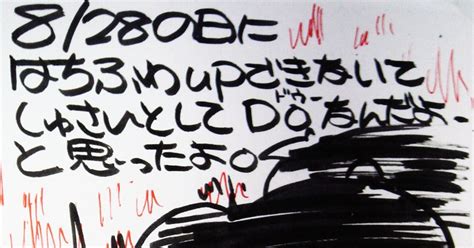 8/28の日に
はちふわupできないて
しゅさいとしてDo,なんだよー
ドゥー
と思ったよ。